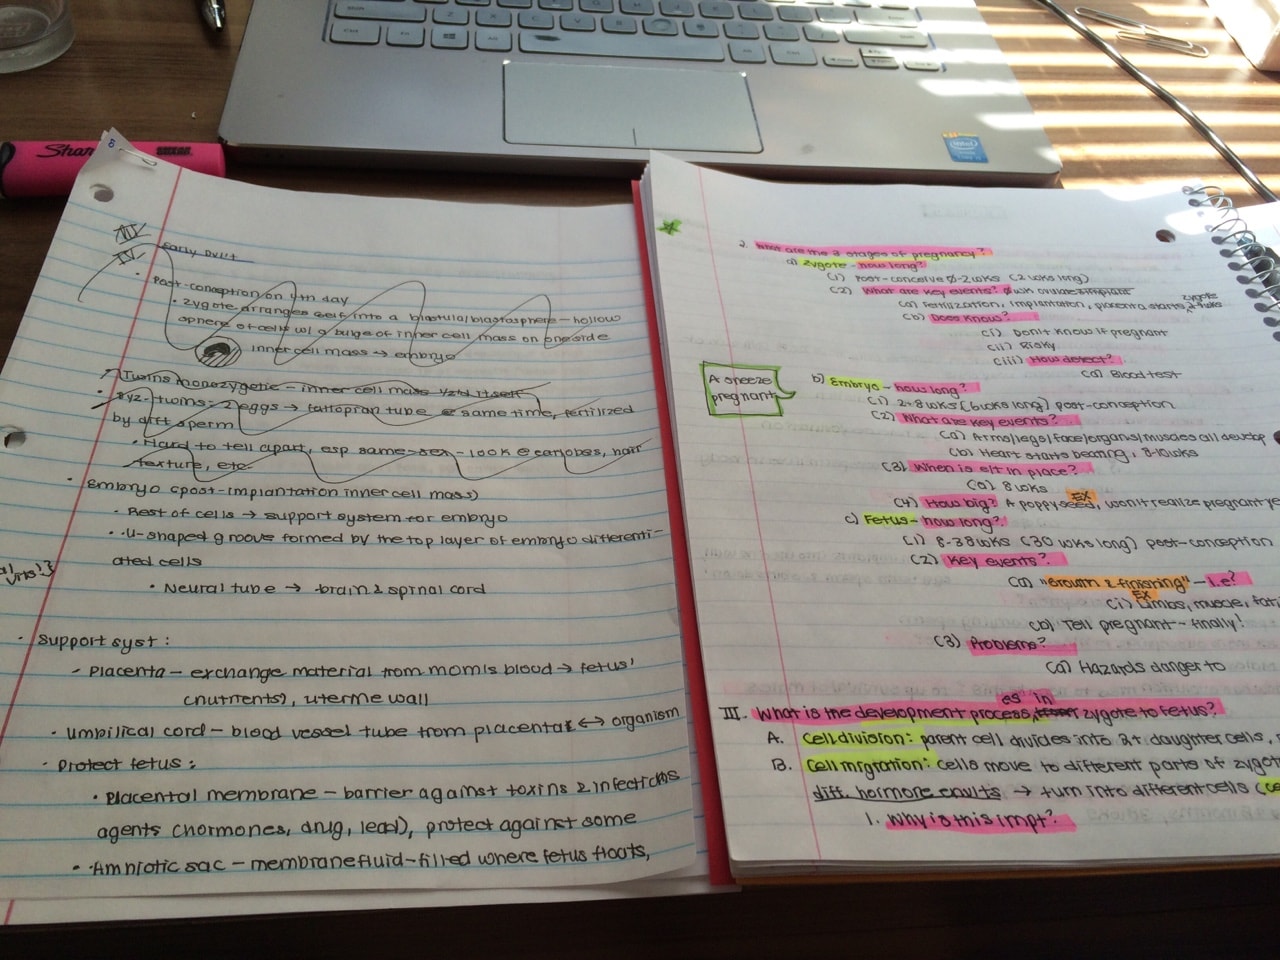 Sharpie
III
IV
Early Dvl't
• Post-conception on 4th day
• Zygote arranges self into a blastula/blastosphere - hollow
sphere of cells w/ a bulge of inner cell mass on one side
inner cell mass → embryo
• Twins monozygotic - inner cell mass ½td itself
• Dyz. twins: 2 eggs → fallopian tube @ same time, fertilized
by diff sperm
• Hard to tell apart, esp same-sex - look @ earlobes, hair
texture, etc.
• Embryo (post-implantation inner cell mass)
• Rest of cells → support system for embryo
• U-shaped groove formed by the top layer of embryo differenti-
ated cells
• Neural tube → brain & spinal cord
• Support syst:
• Placenta - exchange material from mom's blood → fetus'
(nutrients), uterine wall
• Umbilical cord - blood vessel tube from placenta ↔ organism
• Protect fetus:
• Placental membrane - barrier against toxins & infections
agents (hormones, drug, lead), protect against some
• Amniotic sac - membrane fluid-filled where fetus floats,
2. What are the 3 stages of pregnancy?
a) Zygote - how long?
(1) Post-conceive 0-2 wks (2 wks long)
(2) What are key events?
(a) Fertilization, implantation, placenta starts
(b) Does know?
(i) Don't know if pregnant
(ii) Risky
(iii) How detect?
(a) Blood test
A sneeze
pregnant
b) Embryo - how long?
(1) 2-8 wks (6 wks long) post-conception
(2) What are key events?
(a) Arms/legs/face/organs/muscles all develop
(b) Heart starts beating, 8-10 wks
(3) When is e/t in place?
(a) 8 wks
Ex
(4) How big? A poppyseed, won't realize pregnant
c) Fetus - how long?
(1) 8-38 wks (30 wks long) post-conception
(2) Key events?
(a) "Growth & finishing" - i.e?
Ex
(i) Limbs, muscle,
(b) Tell pregnant - finally!
(3) Problems?
(a) Hazards danger to
es in
III. What is the development process, zygote to fetus?
A. Cell division: parent cell divides into 2+ daughter cells,
B. Cell migration: cells move to different parts of
diff. hormone → turn into different cells
1. Why is this impt?